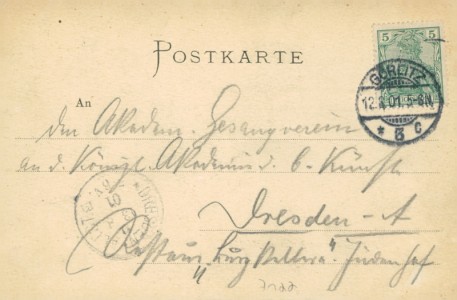 5 5
POSTKARTE
GÖRLITZ
12.2.01. 5-6N.
* 3 c
An
den Akadem. Gesangverein
an d. Königl. Akademie d. b. Künste
Dresden-A
Restaur. „Burg Kellerei" Jüdenhof